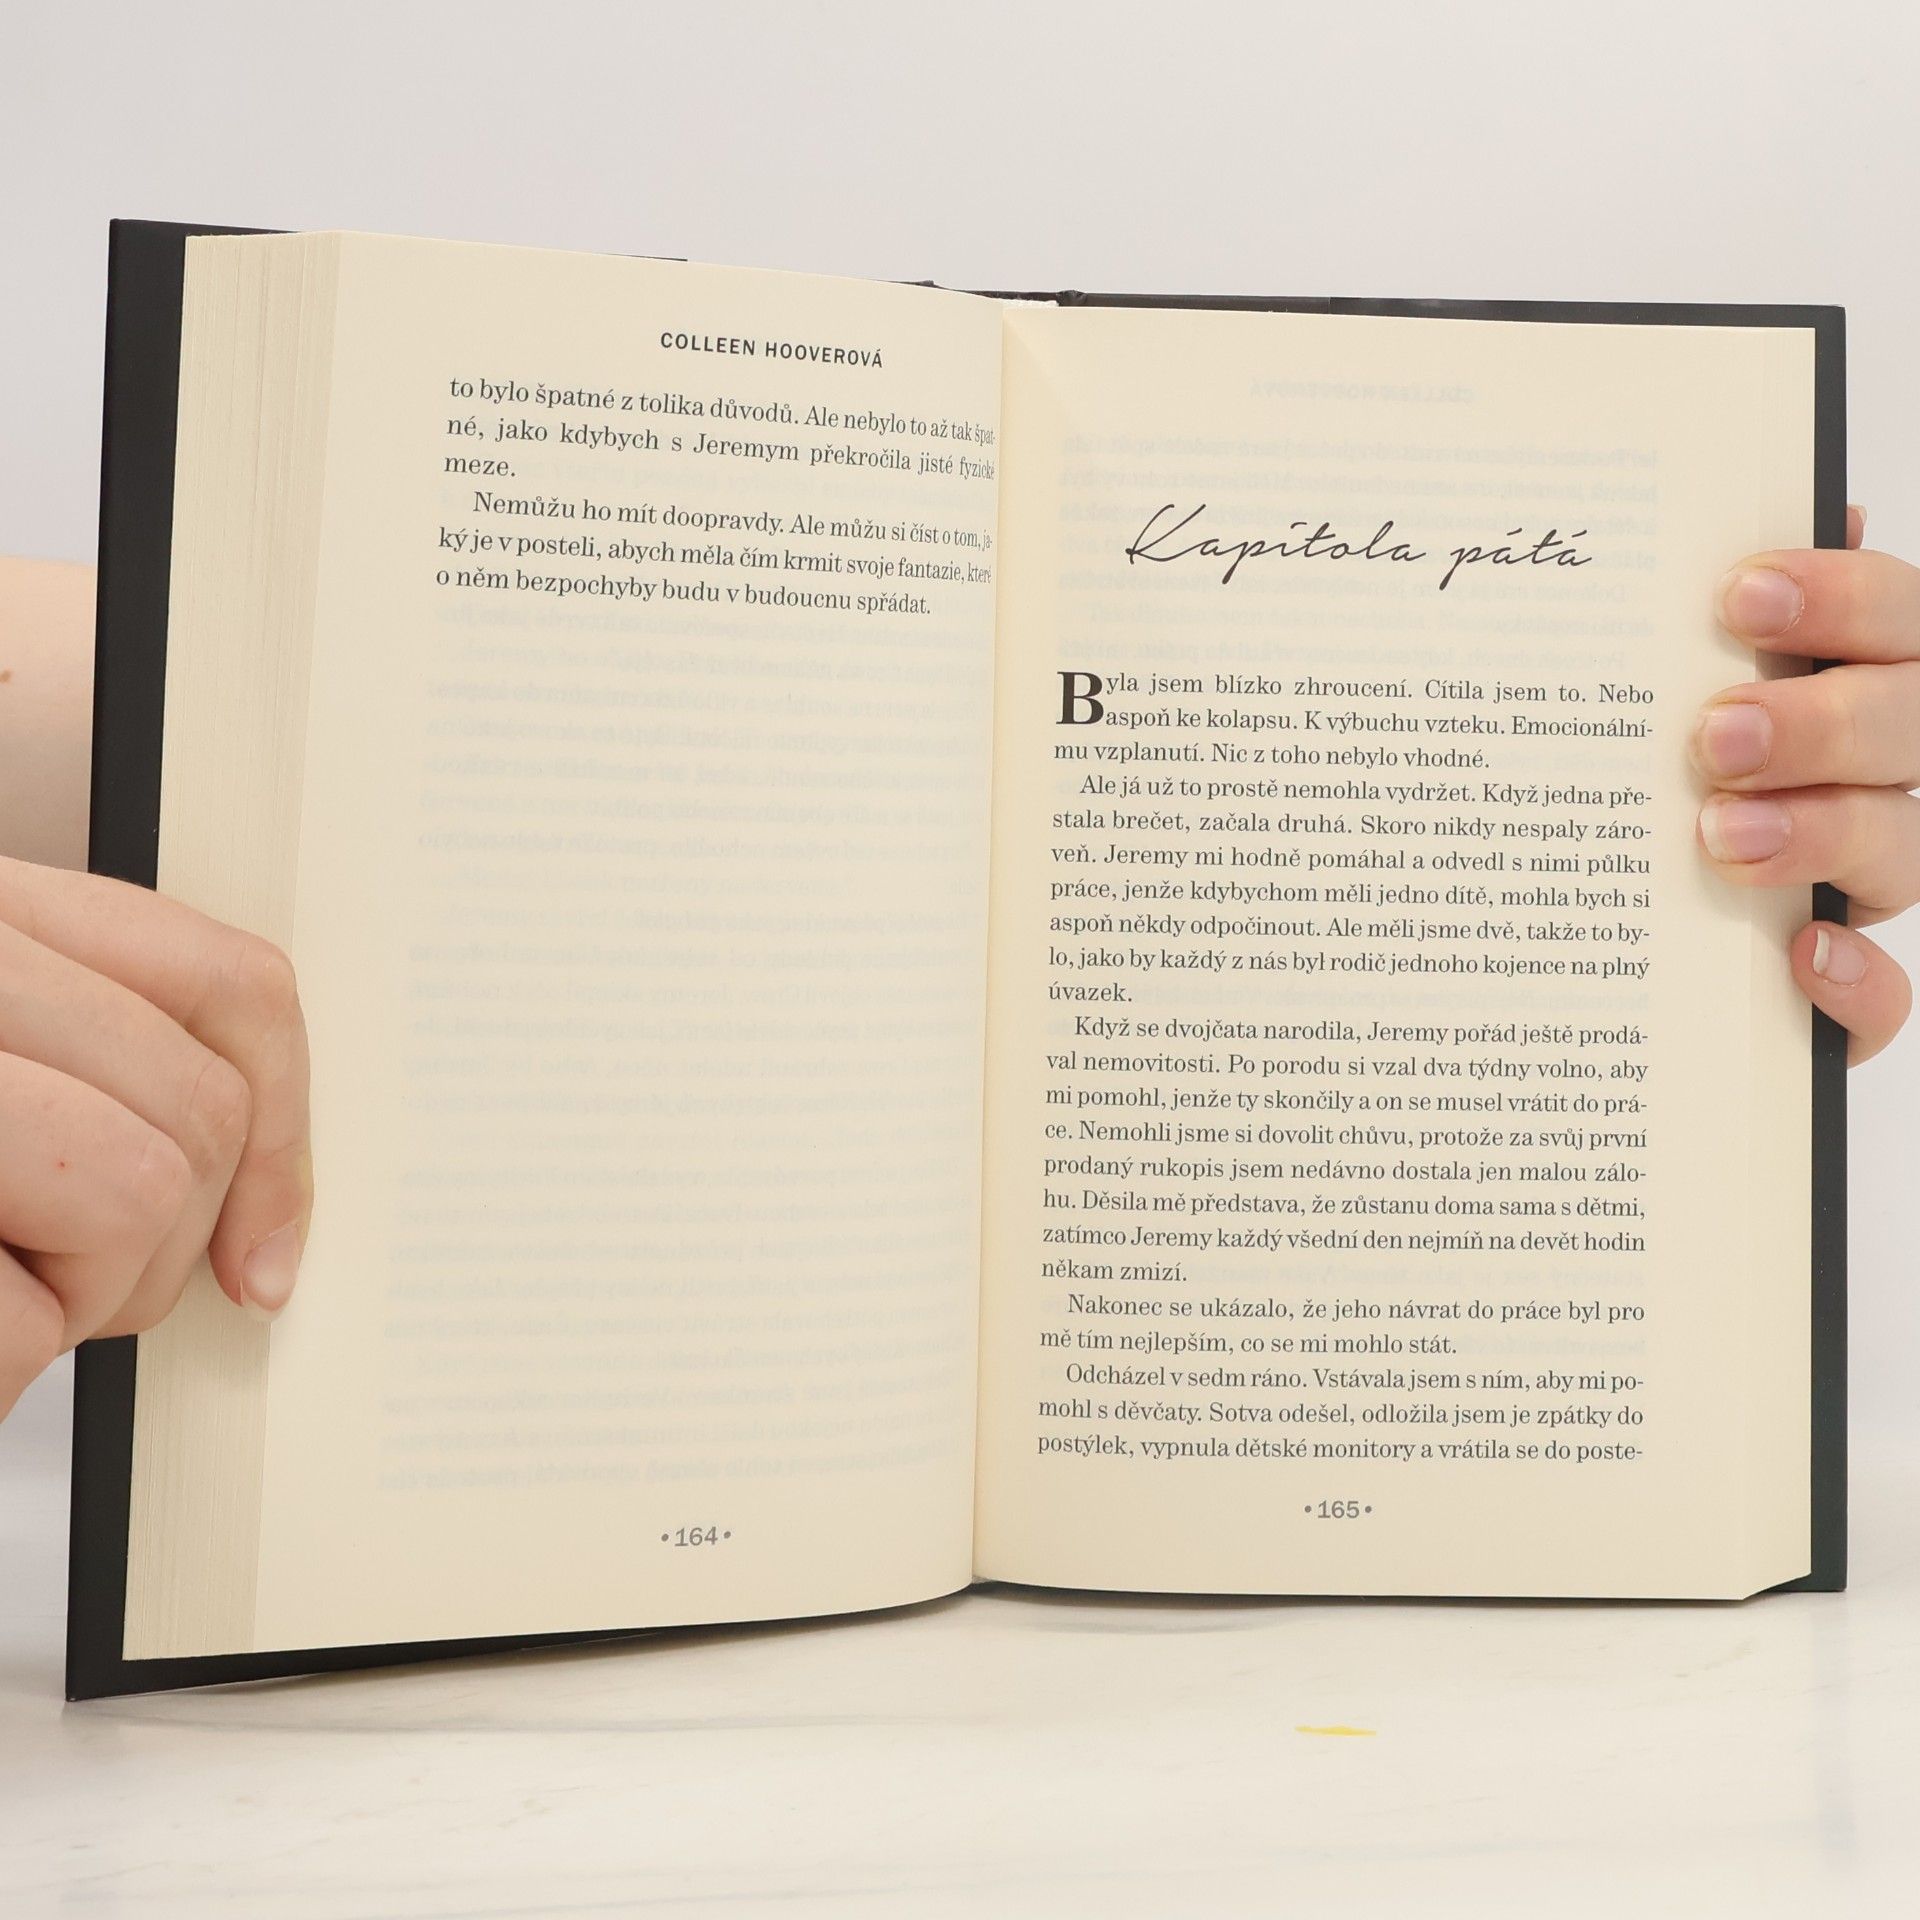 COLLEEN HOOVEROVÁ
to bylo špatné z tolika důvodů. Ale nebylo to až tak špat-
né, jako kdybych s Jeremym překročila jisté fyzické
meze.
Nemůžu ho mít doopravdy. Ale můžu si číst o tom, ja-
ký je v posteli, abych měla čím krmit svoje fantazie, které
o něm bezpochyby budu v budoucnu spřádat.
•164•
Kapitola pátá
Byla jsem blízko zhroucení. Cítila jsem to. Nebo
aspoň ke kolapsu. K výbuchu vzteku. Emocionální-
mu vzplanutí. Nic z toho nebylo vhodné.
Ale já už to prostě nemohla vydržet. Když jedna pře-
stala brečet, začala druhá. Skoro nikdy nespaly záro-
veň. Jeremy mi hodně pomáhal a odvedl s nimi půlku
práce, jenže kdybychom měli jedno dítě, mohla bych si
aspoň někdy odpočinout. Ale měli jsme dvě, takže to by-
lo, jako by každý z nás byl rodič jednoho kojence na plný
úvazek.
Když se dvojčata narodila, Jeremy pořád ještě prodá-
val nemovitosti. Po porodu si vzal dva týdny volno, aby
mi pomohl, jenže ty skončily a on se musel vrátit do prá-
ce. Nemohli jsme si dovolit chůvu, protože za svůj první
prodaný rukopis jsem nedávno dostala jen malou zálo-
hu. Děsila mě představa, že zůstanu doma sama s dětmi,
zatímco Jeremy každý všední den nejmíň na devět hodin
někam zmizí.
Nakonec se ukázalo, že jeho návrat do práce byl pro
mě tím nejlepším, co se mi mohlo stát.
Odcházel v sedm ráno. Vstávala jsem s ním, aby mi po-
mohl s děvčaty. Sotva odešel, odložila jsem je zpátky do
postýlek, vypnula dětské monitory a vrátila se do poste-
•165•